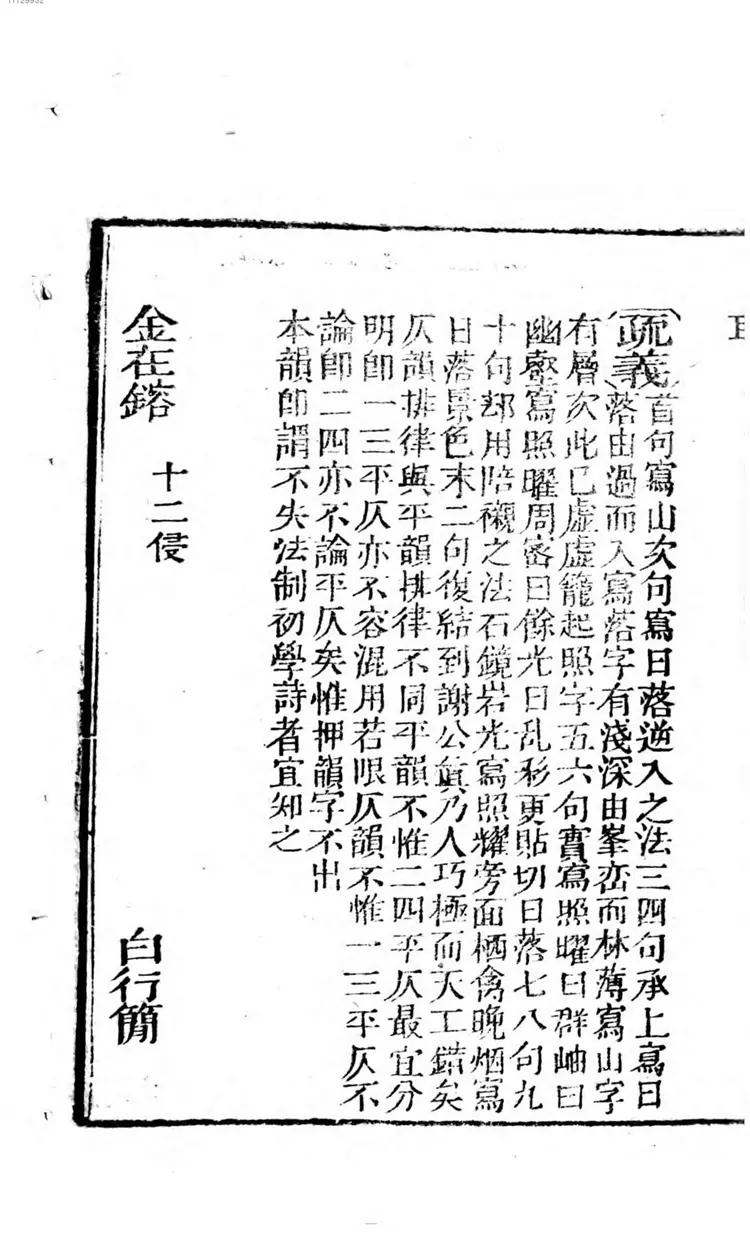 11129932
疏義
首句寫山次句寫日落逆入之法三四句承上寫日
落由過而入寫落字有淺深由峯峦而林薄寫山字
有層次此已虛虛籠起照字五六句實寫照曜曰群岫曰
幽壑寫照曜周密曰餘光曰乱彩更貼切日落七八句九
十句却用陪襯之法石鏡岩光寫照耀旁面栖禽晚烟寫
日落景色末二句復結到謝公真乃人巧極而天工錯矣
仄韻排律與平韻排律不同平韻不惟二四平仄最宜分
明卽一三平仄亦不容混用若眼仄韻不惟一三平仄不
論卽二四亦不論平仄矣惟押韻字不出
本韻卽謂不失法制初學詩者宜知之
金在鎔 十二侵 白行簡